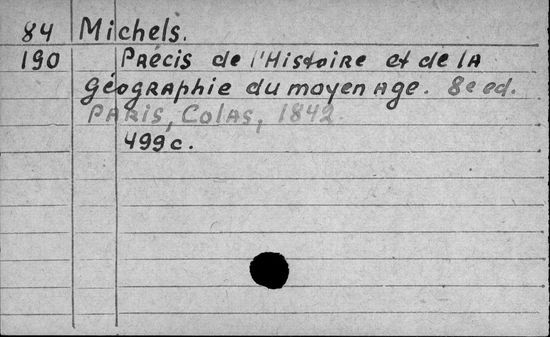 84 Michels.
190 Précis de l'Histoire et de la
géographie du moyen age. 8e ed.
Paris, Colas, 1842.
499 c.